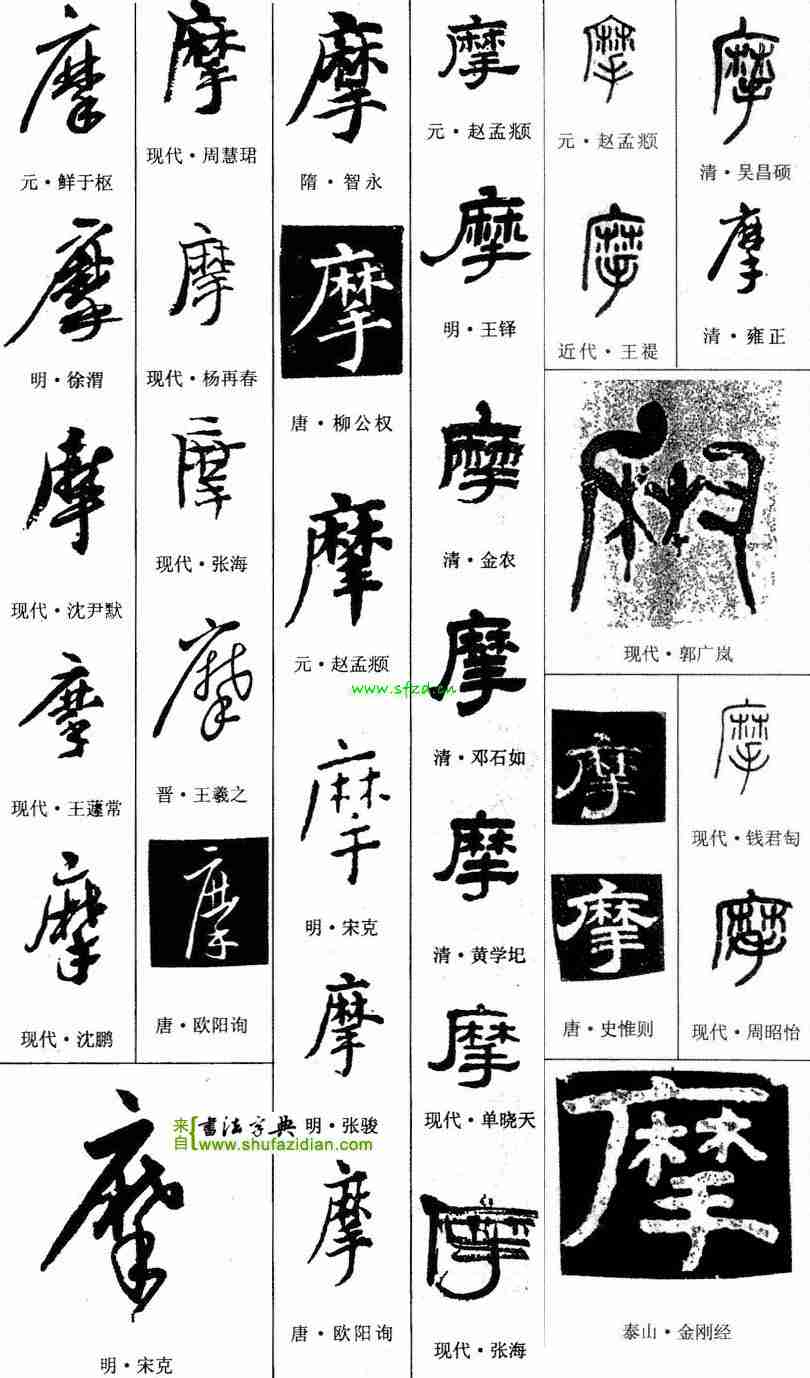 摩
元·鲜于枢
摩
明·徐渭
摩
现代·沈尹默
摩
现代·王蘧常
摩
现代·沈鹏
摩
明·宋克
摩
现代·周慧珺
摩
现代·杨再春
摩
现代·张海
摩
晋·王羲之
摩
唐·欧阳询
来自
书法字典
www.shufazidian.com
摩
隋·智永
摩
唐·柳公权
摩
元·赵孟頫
www.sfzd.cn
摩
明·宋克
摩
明·张骏
摩
唐·欧阳询
摩
元·赵孟頫
摩
明·王铎
摩
清·金农
摩
清·邓石如
摩
清·黄学圯
摩
现代·单晓天
摩
现代·张海
摩
元·赵孟頫
摩
近代·王禔
摩
清·吴昌硕
摩
清·雍正
现代·郭广岚
摩
摩
唐·史惟则
摩
现代·钱君匋
摩
现代·周昭怡
摩
泰山·金刚经